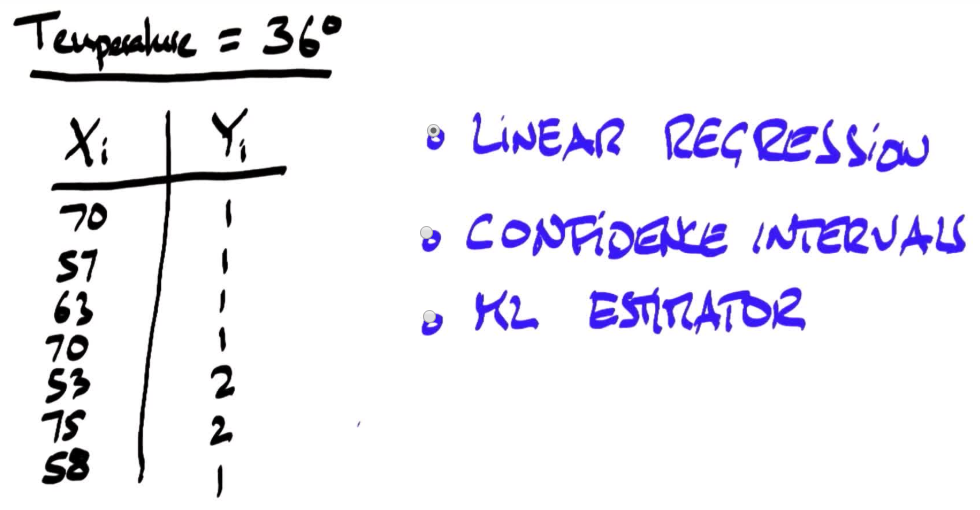 Temperature = 36°
Xi Yi
70 1
57 1
63 1
70 1
53 2
75 2
58 1
LiNEAR REGRESSiON
CONFiDENCE INTERVALS
ML ESTIMATOR